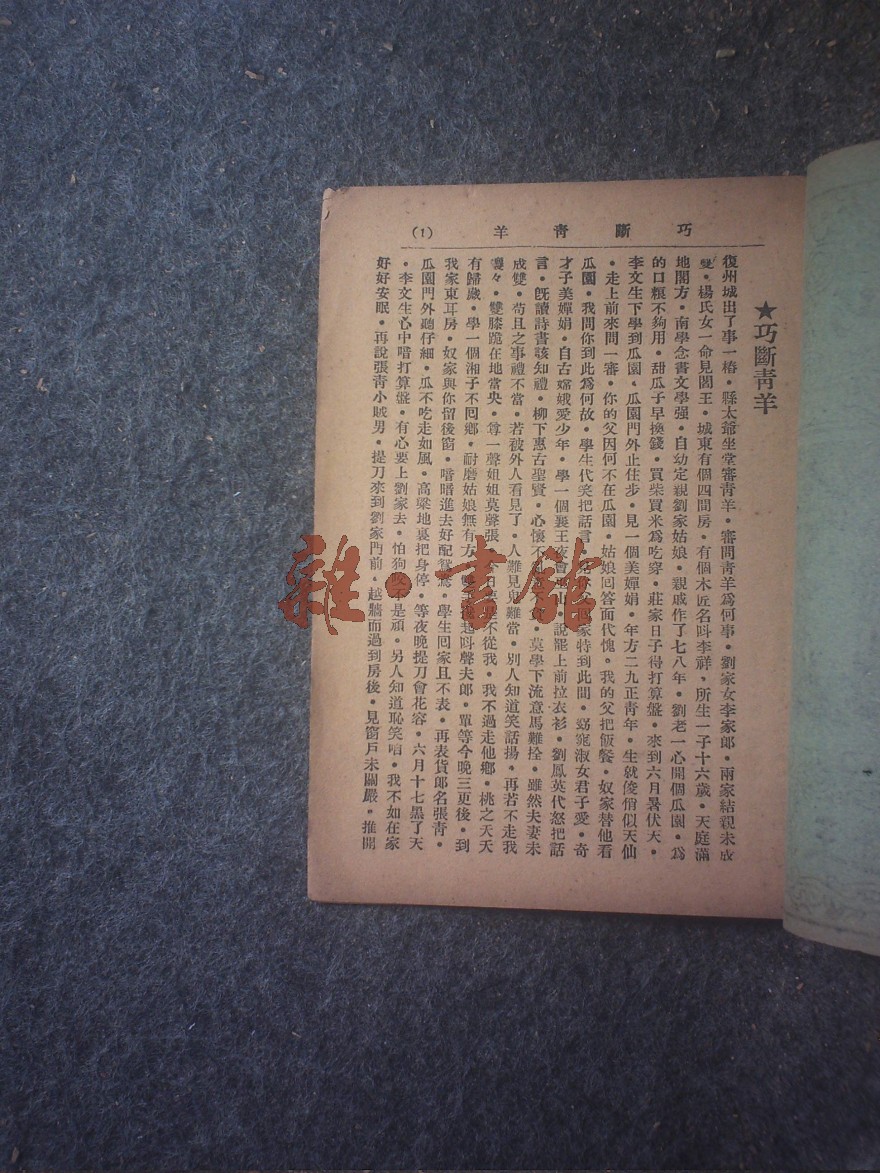 巧斷青羊 (1)
★巧斷青羊
復州城出了事一樁・縣太爺坐堂審青羊・審問青羊爲何事・劉家女李家郎・兩家結親未成
雙・楊氏女一命見閻王・城東有個四間房・有個木匠名呌李祥、所生一子十六歲・天庭滿
地閣方・南學念書文學强・自幼定親劉家姑娘・親戚作了七八年・劉老一心開個瓜園・爲
的口糧不夠用・甜瓜子早換錢・買柴買米爲吃穿・莊家日子得打算盤・來到六月暑伏天・
李文生下學到瓜園・瓜園門外止住步・見一個美嬋娟・年方二九正靑年・生就俊俏似天仙
・走上前來問一審・你的父因何不在瓜園・姑娘回答面代愧・我的父把飯餐・奴家替他看
瓜園・我問你到此爲何故・學生代笑把話言・家特到此間・窈窕淑女君子愛・奇
才子美嬋娟・自古嫦娥愛少年・學一個襄王夜會山・說罷上前拉衣衫・劉鳳英代怒把話
言・旣讀詩書該知禮・柳下惠古聖賢・心懷不・莫學下流意馬難拴・雖然夫妻未
成雙・苟且之事禮不當・若被外人看見了・人難見鬼難當・別人知道笑話揚・再若不走我
嚷々・雙膝跪在地當央・尊一聲姐姐莫聲張・今日不從我・我不過走他鄉・桃之天天
有歸歲・學一個湘子不囘鄉・耐磨姑娘無有方・雙手起呌聲夫郎・單等今晩三更後・到
我家東耳房・奴家與你留後窗・喑喑進去好配鴛鴦・學生囘家且不表・再表貨郎名張靑・
瓜園門外聽仔細・瓜不吃走如風・高粱地裏把身停・等夜晚提刀會花容・六月十七黑了天
・李文生心中喑打算盤・有心要上劉家去・怕狗咬不是頑・另人知道恥笑咱・我不如在家
好好安眠・再說張靑小賊男・提刀來到劉家門前・越牆而過到房後・見窗戶未關嚴・推開
雜・書館